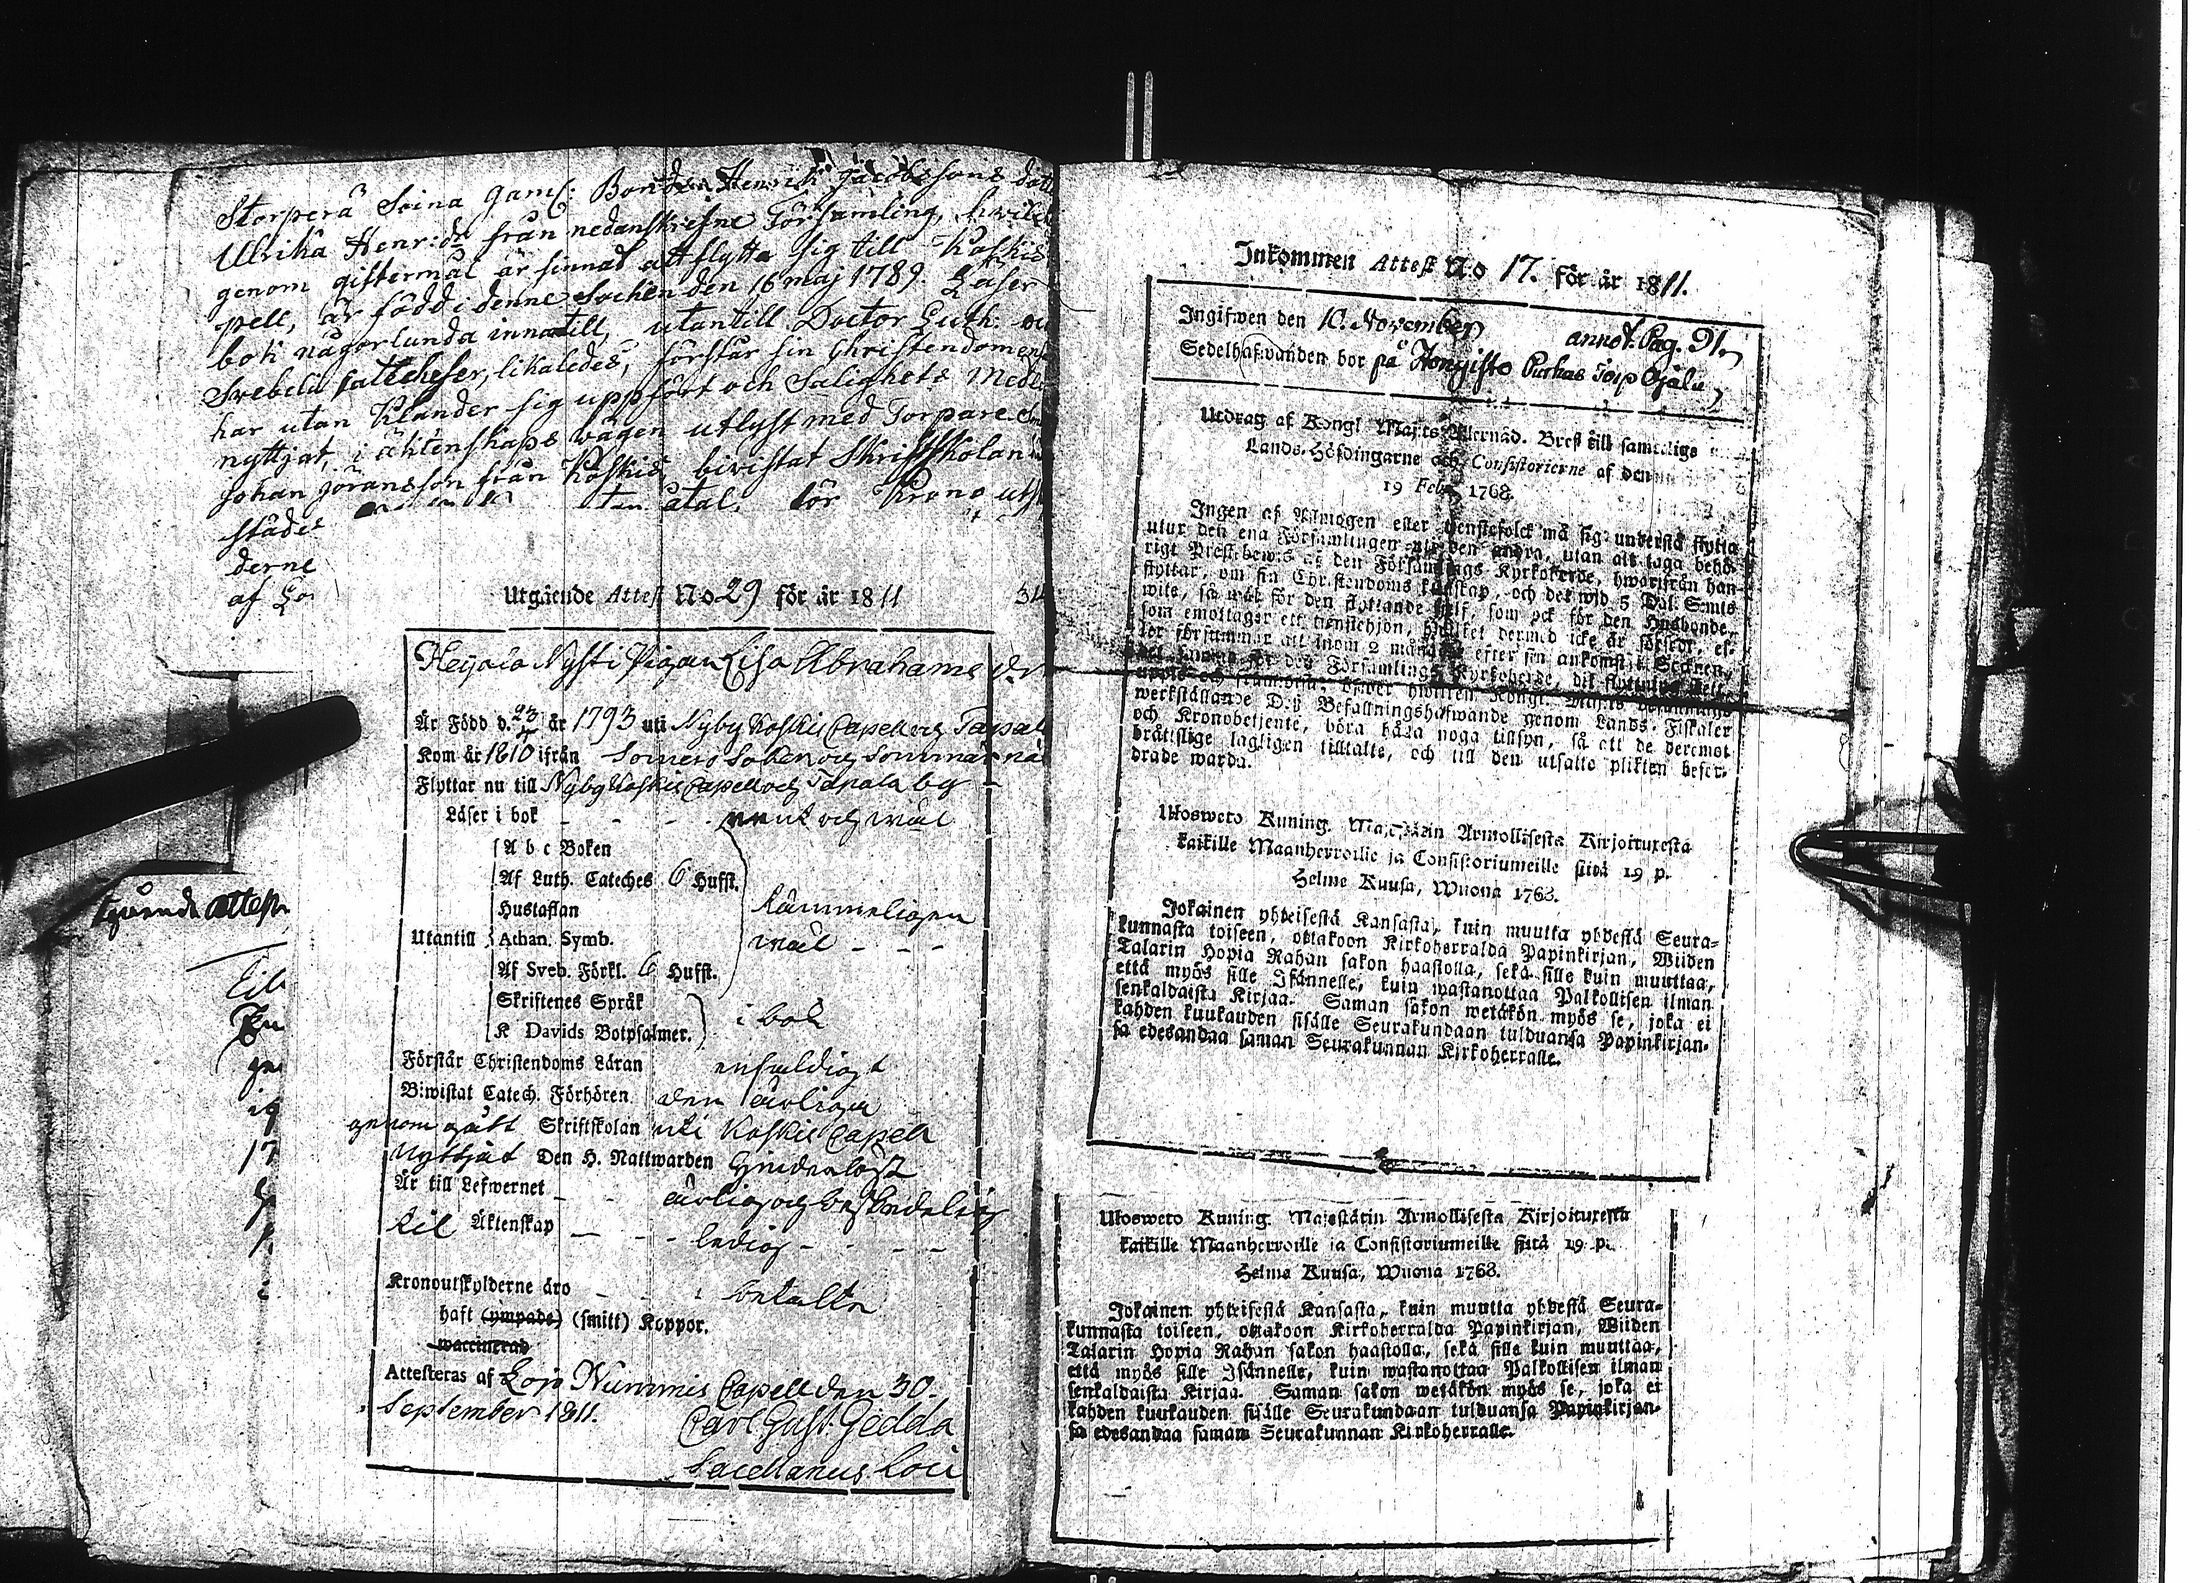 Storperä Soina gaml: Bonden Henrik Jacobssons
Ulrika Henr:dr från nedanskrefne Församling,
genom giftermål är sinnad att flytta sig till Koskis
pell, är född i denne Sochen den 16 maj 1789. Läser
bok någorlunda innantill, utantill Doctor Luth:
Svebelii Catteheser, likaledes, förstår sin Christendomens
har utan Klander sig uppfört och Salighets Medl
nyttjat, i äktenskaps wägen utlyst med Torpare
Johan Jöransson från Koskis, biwistat Skriftskolan
städes åtal. för Krono
derne
af
Utgående Attest No 29 för år 1811
Heijala Nysti Pigan Lisa Abrahams dr
Är Född d. 23 år 1793 uti Nyby Koskis Capell och Tapal
Kom år 1810 ifrån Somero Soken och Sommarnä
Flyttar nu till Nyby Koskis Capell och Tapala by
Läser i bok - - - rent och wäl
A b c Boken
Af Luth. Cateches 6 Hufst.
Hustaflan kämmeligen
Utantill Athan. Symb. wäl - - -
Af Sveb. Förkl. 6 Hufst.
Skriftenes Språk
K Davids Botpsalmer. i bok
Förstår Christendoms Läran enfaldigt
Biwistat Catech. Förhören den årliga
genomgått Skriftskolan uti Koskis Capell
Nyttjat Den H. Nattwarden hinderlöst
Är till Lefwernet - - ärlig och beskedelig
til Äktenskap - - - ledig - - - -
Kronoutskylderne äro - - - betalta
haft (ympade) (smitt) Koppor.
waccinerad
Attesteras af Lojo Nummis Capell den 30.
September 1811. Carl Gust. Gedda
Sacellanus Loci
gående attest
17
Inkommen Attest No 17. för år 1811.
Ingifwen den 10. November annot. Pag. 91.
Sedelhafwanden bor på Hongisto Purhas Torp Ojala
Utdrag af Kongl Maj:ts Allernåd. Bref till samtelige
Lands-Höfdingarne och Consistorierne af den
19 Febr. 1768.
Ingen af Allmogen eller tjenstefolck må sig understå flytta
utur den ena Församlingen uti den andra, utan att taga behö-
rigt Prestebewis af den Församlings Kyrkoherde, hwarifrån han
flyttar, om sin Christendoms kunskap, och det wid 5 Dal. S:mts
wite, så wäl för den flyttande sielf, som ock för den Husbonde,
som emottager ett tienstehjon, hwilket dermed icke är försedt, el-
ler försummar att inom 2 månader efter sin ankomst til Socknen,
för den Församlings Kyrkoherde, dit flyttning
hwilken Kongl. Maj:ts
werkställande D:ß Befallningshafwande genom Lands-Fiskaler
och Kronobetjente, böra hafa noga tillsyn, så att de deremot
bråttslige lagligen tilltalte, och till den utsatte plikten befor-
drade warda.
Ulosweto Kuning. Majestätin Armollisesta Kirjoituxesta
kaikille Maanherroille ja Consistoriumeille siitä 19 p.
Helme Kuusa, Wuona 1768.
Jokainen yhteisestä Kansasta, kuin muutta yhdestä Seura-
kunnasta toiseen, ottakoon Kirkoherralda Papinkirjan, Wiiden
Talarin Hopia Rahan sakon haastolla, sekä sille kuin muuttaa,
että myös sille Isännelle, kuin wastanottaa Palkollisen ilman
senkaldaista Kirjaa. Saman sakon wetäkön myös se, joka ei
kahden kuukauden sisälle Seurakundaan tulduansa Papinkirjan-
sa edesandaa saman Seurakunnan Kirkoherralle.
Ulosweto Kuning. Majestätin Armollisesta Kirjoituxesta
kaikille Maanherroille ja Consistoriumeille siitä 19 p.
Helme Kuusa, Wuona 1768.
Jokainen yhteisestä Kansasta, kuin muutta yhdestä Seura-
kunnasta toiseen, ottakoon Kirkoherralda Papinkirjan, Wiiden
Talarin Hopia Rahan sakon haastolla, sekä sille kuin muuttaa,
että myös sille Isännelle, kuin wastanottaa Palkollisen ilman
senkaldaista Kirjaa. Saman sakon wetäkön myös se, joka ei
kahden kuukauden sisälle Seurakundaan tulduansa Papinkirjan-
sa edesandaa saman Seurakunnan Kirkoherralle.